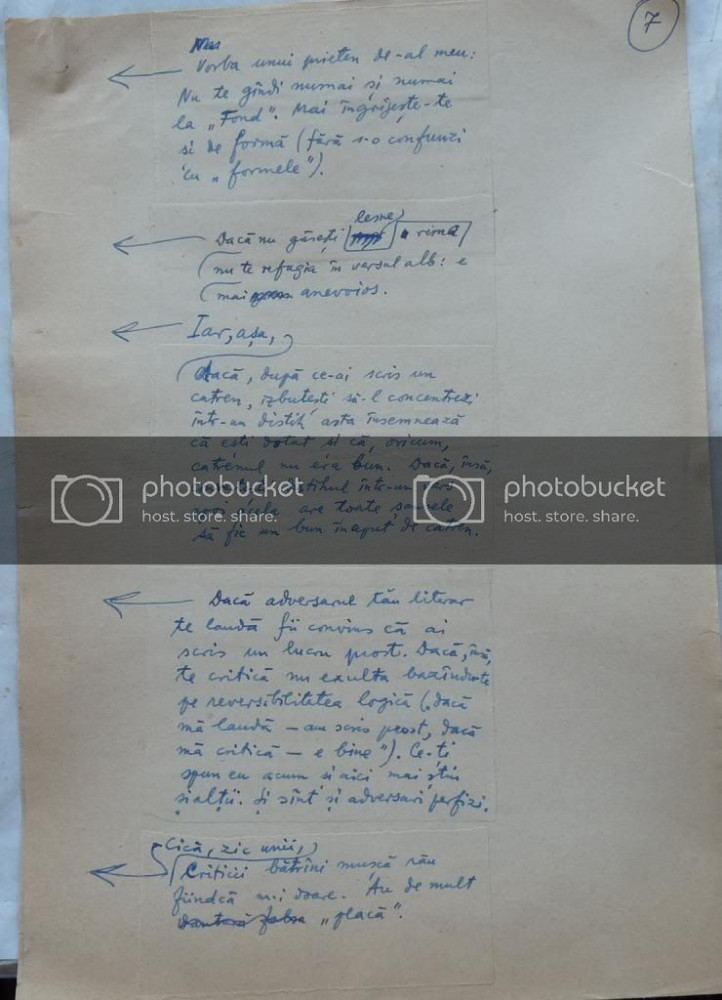 7
Vorba unui prieten de-al meu:
Nu te gîndi numai și numai
la „Fond". Mai îngrijește-te
și de formă (fără s-o confunzi
cu „formele").
lesne
Dacă nu găsești rima
nu te refugia în versul alb: e
mai anevoios.
Iar, așa,
Dacă, după ce-ai scris un
catren, izbutești să-l concentrezi
într-un distih, asta însemnează
că ești dotat și că, oricum,
catrenul nu era bun. Dacă, însă,
distihul într-un vers
acela are toate șansele
să fie un bun început de catren.
photobucket
host. store. share.
photobucket
host. store. share.
Dacă adversarul tău literar
te laudă fii convins că ai
scris un lucru prost. Dacă, însă,
te critică nu exulta bazîndu-te
pe reversibilitatea logică („dacă
mă laudă – am scris prost, dacă
mă critică – e bine"). Ce-ți
spun eu acum și aici mai știu
și alții. Și sînt și adversari perfizi.
Cică, zic unii,
Criticii bătrîni mușcă rău
fiindcă n-i doare. Au de mult
„placă".